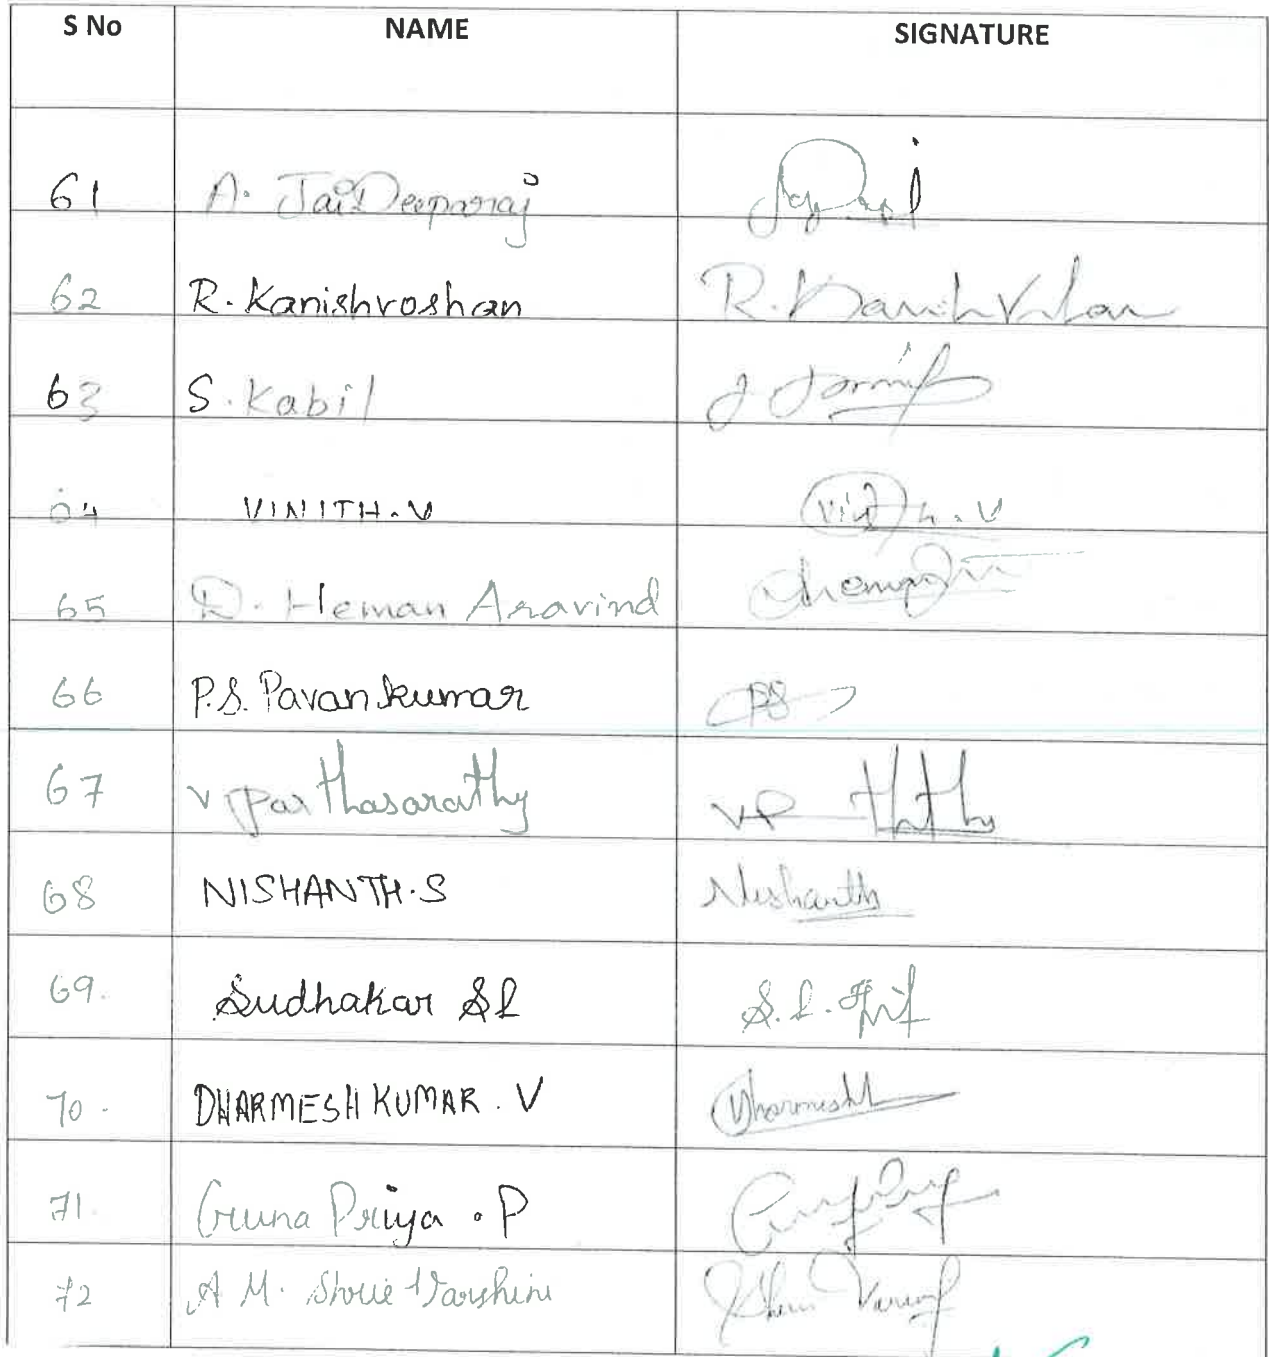 S No NAME SIGNATURE
61 A. JaiDeeparaj
62 R. Kanishroshan
63 S. Kabil
64 VINITH.V Vinith.V
65 D. Heman Aravind
66 P.S. Pavankumar PS
67 V Parthasarathy VP
68 NISHANTH.S Nishanth
69. Sudhakar SL S.L.
70. DHARMESH KUMAR. V Dharmesh
71. Guna Priya . P
72 A M. Shree Varshini